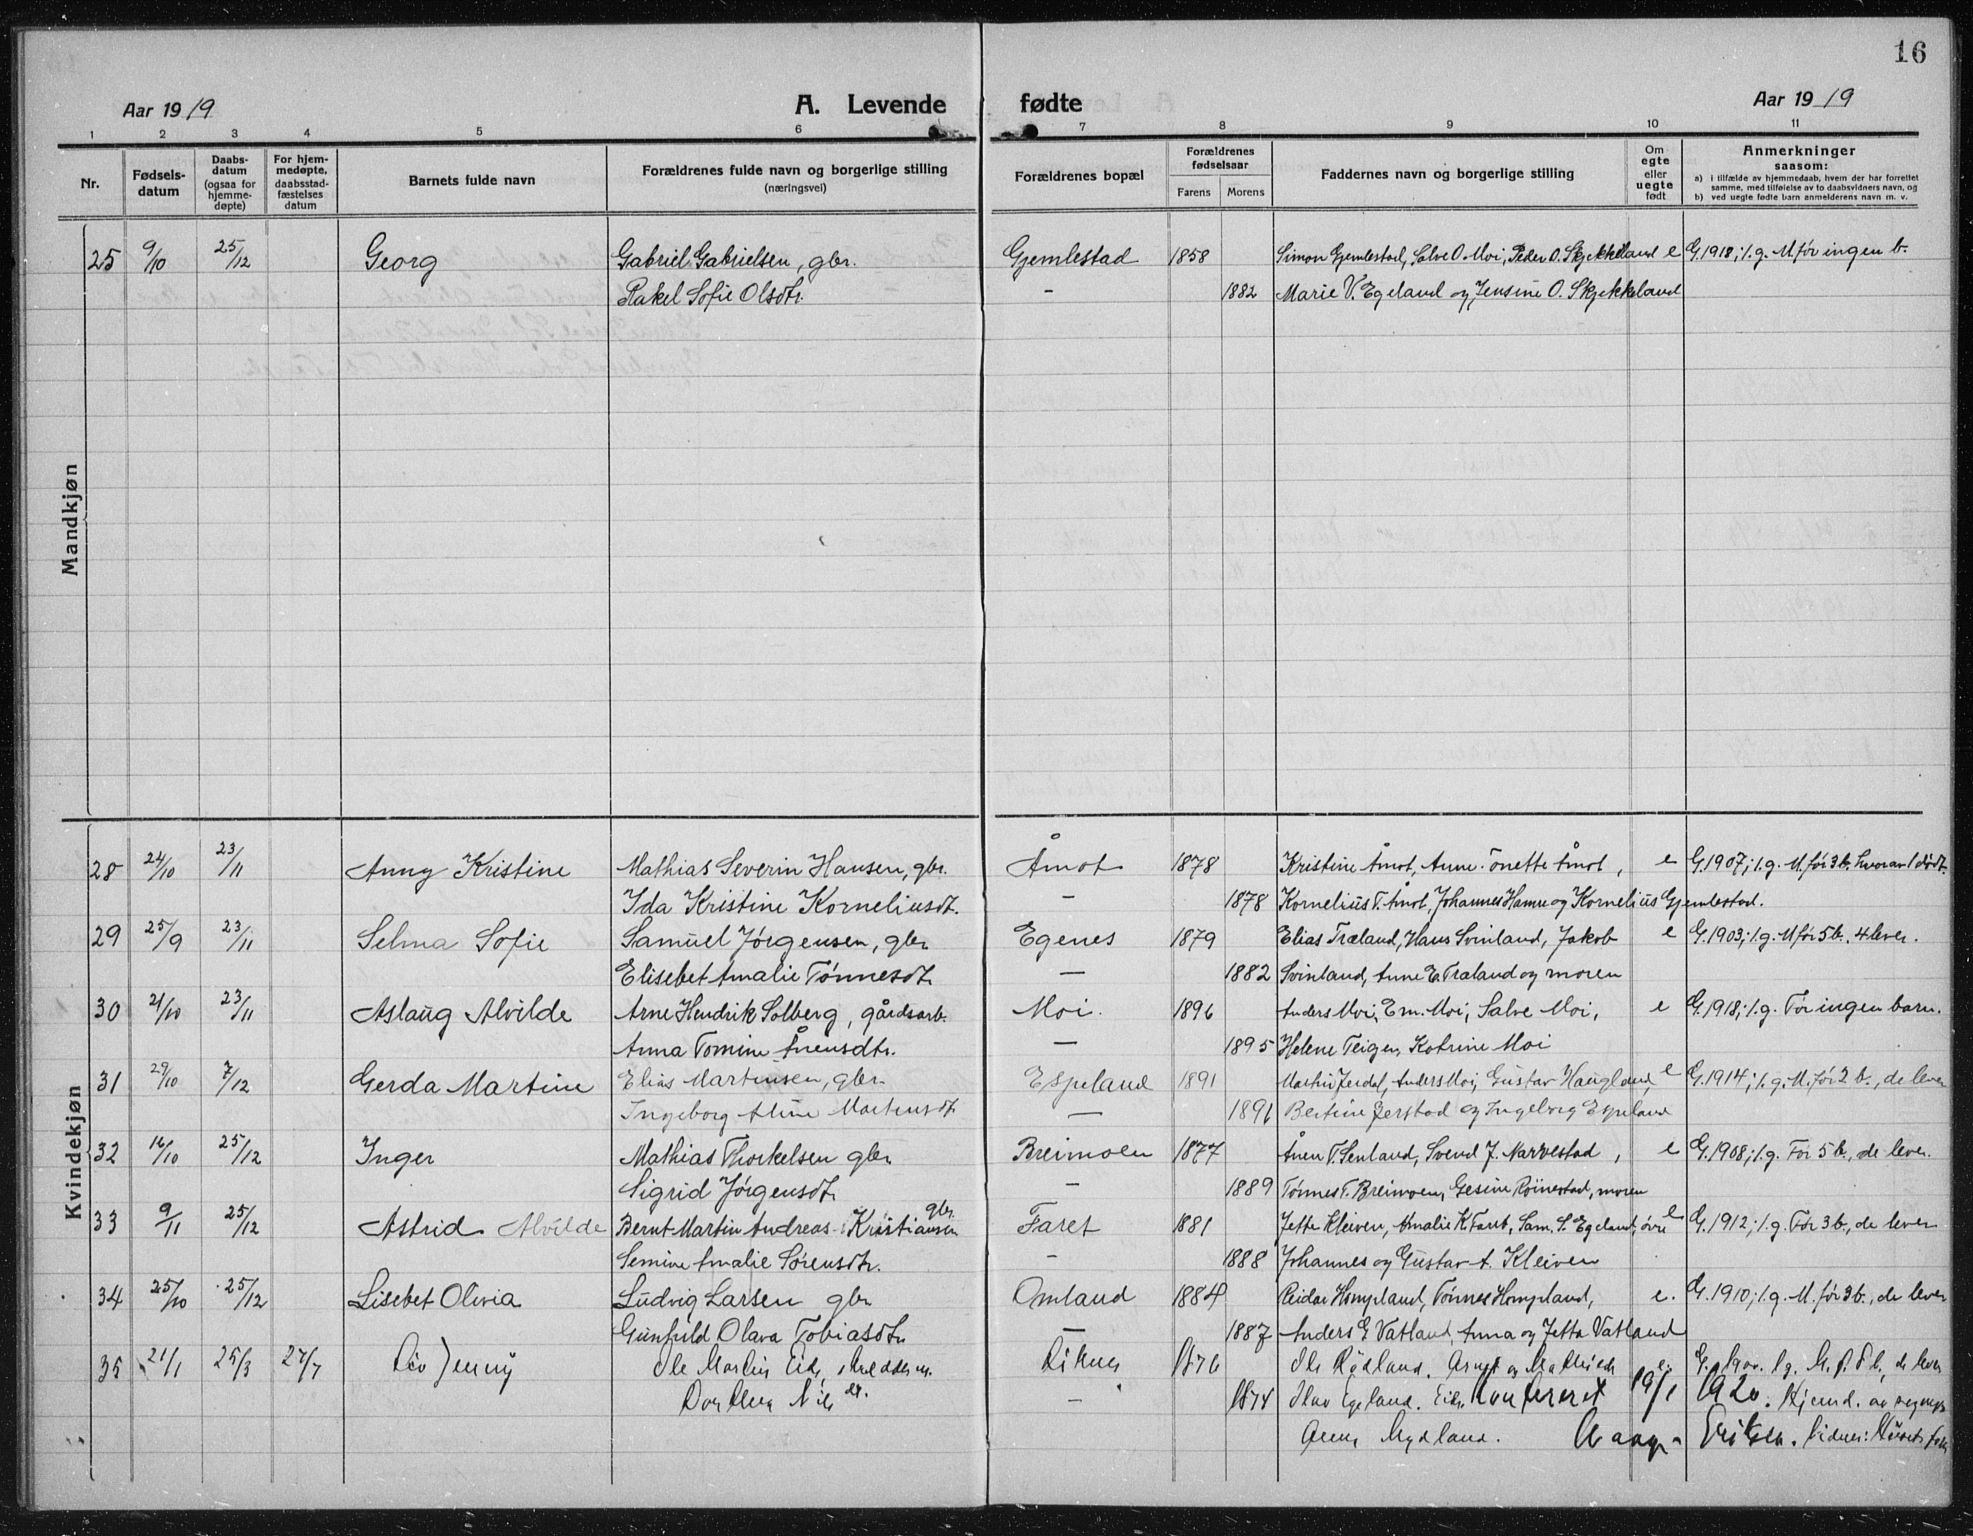 16
Aar 1919 A. Levende fødte Aar 1919
1 2 3 4 5 6 7 8 9 10 11
Nr.
Fødsels-
datum
Daabs-
datum
(ogsaa for
hjemme-
døpte)
For hjem-
medøpte,
daabsstad-
fæstelses
datum
Barnets fulde navn
Forældrenes fulde navn og borgerlige stilling
(næringsvei)
Forældrenes bopæl
Forældrenes
fødselsaar
Farens Morens
Faddernes navn og borgerlige stilling
Om
egte
eller
uegte
født
Anmerkninger
saasom:
a) i tilfælde av hjemmedaab, hvem der har forrettet
samme, med tilføielse av to daabsvidners navn, og
b) ved uegte fødte barn anmelderens navn m. v.
Mandkjøn
25 9/10 25/12 Georg Gabriel Gabrielsen, gbr. Gjemlestad 1858 Simon Gjemlestad, Salve O. Moi, Peder O. Skjekkeland e G. 1918; 1. g. M. før ingen b.
Rakel Sofie Olsdtr. - 1882 Marie V. Egeland og Jensine O. Skjekkeland
Kvindekjøn
28 24/10 23/11 Anny Kristine Mathias Severin Hansen, gbr. Åmot 1878 Kristine Åmot, Anne Tonette Åmot, e G. 1907; 1. g. M. før 3 b. hvorav 1 dødt.
Ida Kristine Korneliusdt. - 1878 Kornelius T. Åmot, Johannes Hamre og Kornelius Gjemlestad.
29 25/9 23/11 Selma Sofie Samuel Jørgensen, gbr Egenes 1879 Elias Træland, Hans Svinland, Jakob e G. 1903; 1. g. M før 5 b. 4 lever.
Elisebet Amalie Tønnesdt. - 1882 Svinland, Anne E. Træland og moren
30 21/10 23/11 Aslaug Alvilde Arne Hendrik Solberg, gårdsarb. Moi. 1896 Anders Moi, Em. Moi, Salve Moi, e G. 1918; 1. g. Før ingen barn.
Anna Tomine Ånensdtr. - 1895 Helene Teigen, Katrine Moi
31 29/10 7/12 Gerda Martine Elias Martinsen, gbr. Espeland 1891 Martin Jerdal, Anders Moi, Gustav Haugland, e G. 1914; 1. g. M. før 2 b., de lever
Ingeborg Aline Martensdt. - 1891 Bertine Jerstad og Ingeborg Espeland
32 16/10 25/12 Inger Mathias Thorkelsen gbr Breimoen 1877 Ånen T. Senland, Svend J. Narvestad, e G. 1908; 1. g. Før 5 b., de lever.
Sigrid Jørgensdt. - 1889 Tønnes T. Breimoen, Gesine Røinestad, moren
33 9/11 25/12 Astrid Alvilde Bernt Martin Andreas Kristiansen gbr. Faret 1881 Jette Kleiven, Amalie K. Faret, Sam. S. Egeland, øvre e G. 1912; 1. g. Før 3 b., de lever
Semine Amalie Sørensdtr. - 1888 Johannes og Gustav A. Kleiven
34 25/10 25/12 Lisebet Olivia Ludvig Larsen gbr Omland 1884 Reidar Hompland, Tønnes Hompland, e. G. 1910; 1. g. M. før 3 b., de lever
Gunhild Olava Tobiasdtr. - 1887 Anders G Vatland, Anna og Jetta Vatland
35 21/1 25/3 27/7 Liv Jenny Ole Martin Eide, skredderm. 1876 Ole Rødland. e. 1. g. M. f. 8 b., de lever
Dorthea Nils dt. - 1874 Olav Egeland. Konfereret 19/1 1920. Hjemd. av
Anna Mydland. Aaage Eriksen.